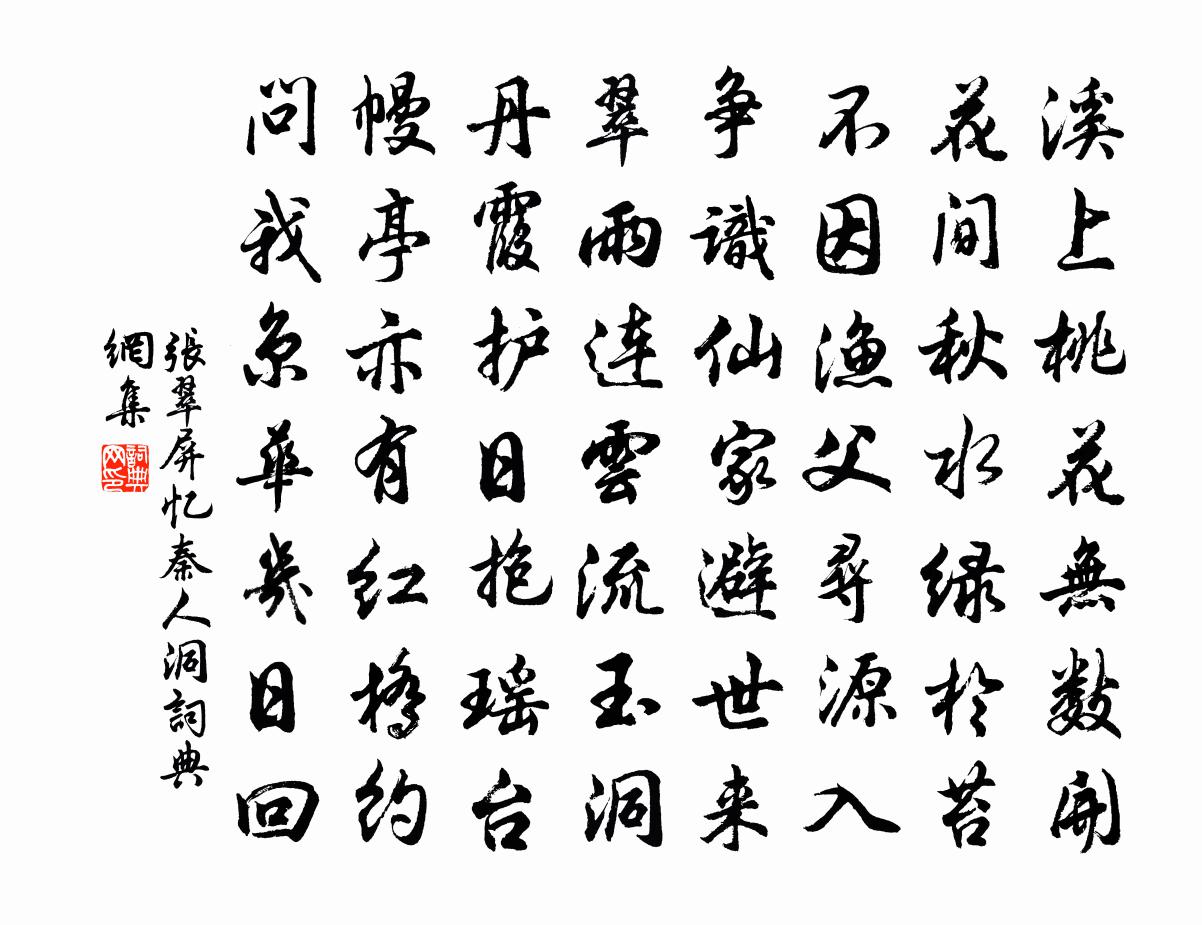 溪上桃花無數開
花间秋水绿於苔
不因渔父尋源入
争識仙家避世来
翠雨连雲流玉洞
丹霞护日抱瑶台
幔亭亦有红橋约
问我京華幾日回
張翠屏忆秦人洞詞典
網集
詞典
网印